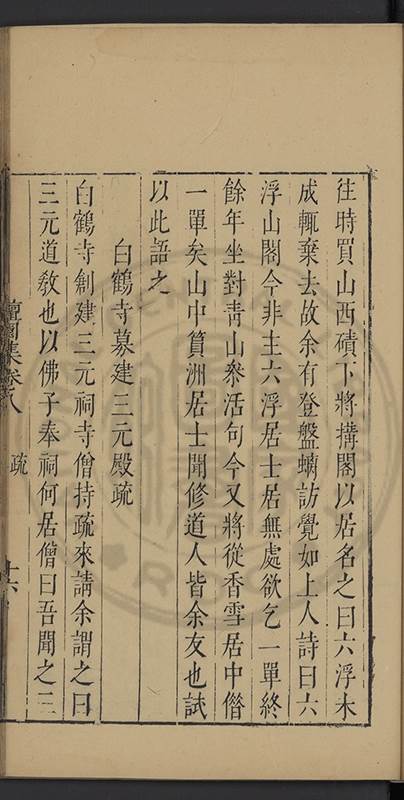 往時買山西磧下將搆閣以居名之曰六浮未
成輒棄去故余有登盤螭訪覺如上人詩曰六
浮山閣今非主六浮居士居無處欲乞一單終
餘年坐對青山叅活句今又將從香雪居中借
一單矣山中筼洲居士聞修道人皆余友也試
以此語之
白鶴寺募建三元殿疏
白鶴寺創建三元祠寺僧持疏來請余謂之曰
三元道教也以佛子奉祠何居僧曰吾聞之三
檀園集卷八
疏
十六